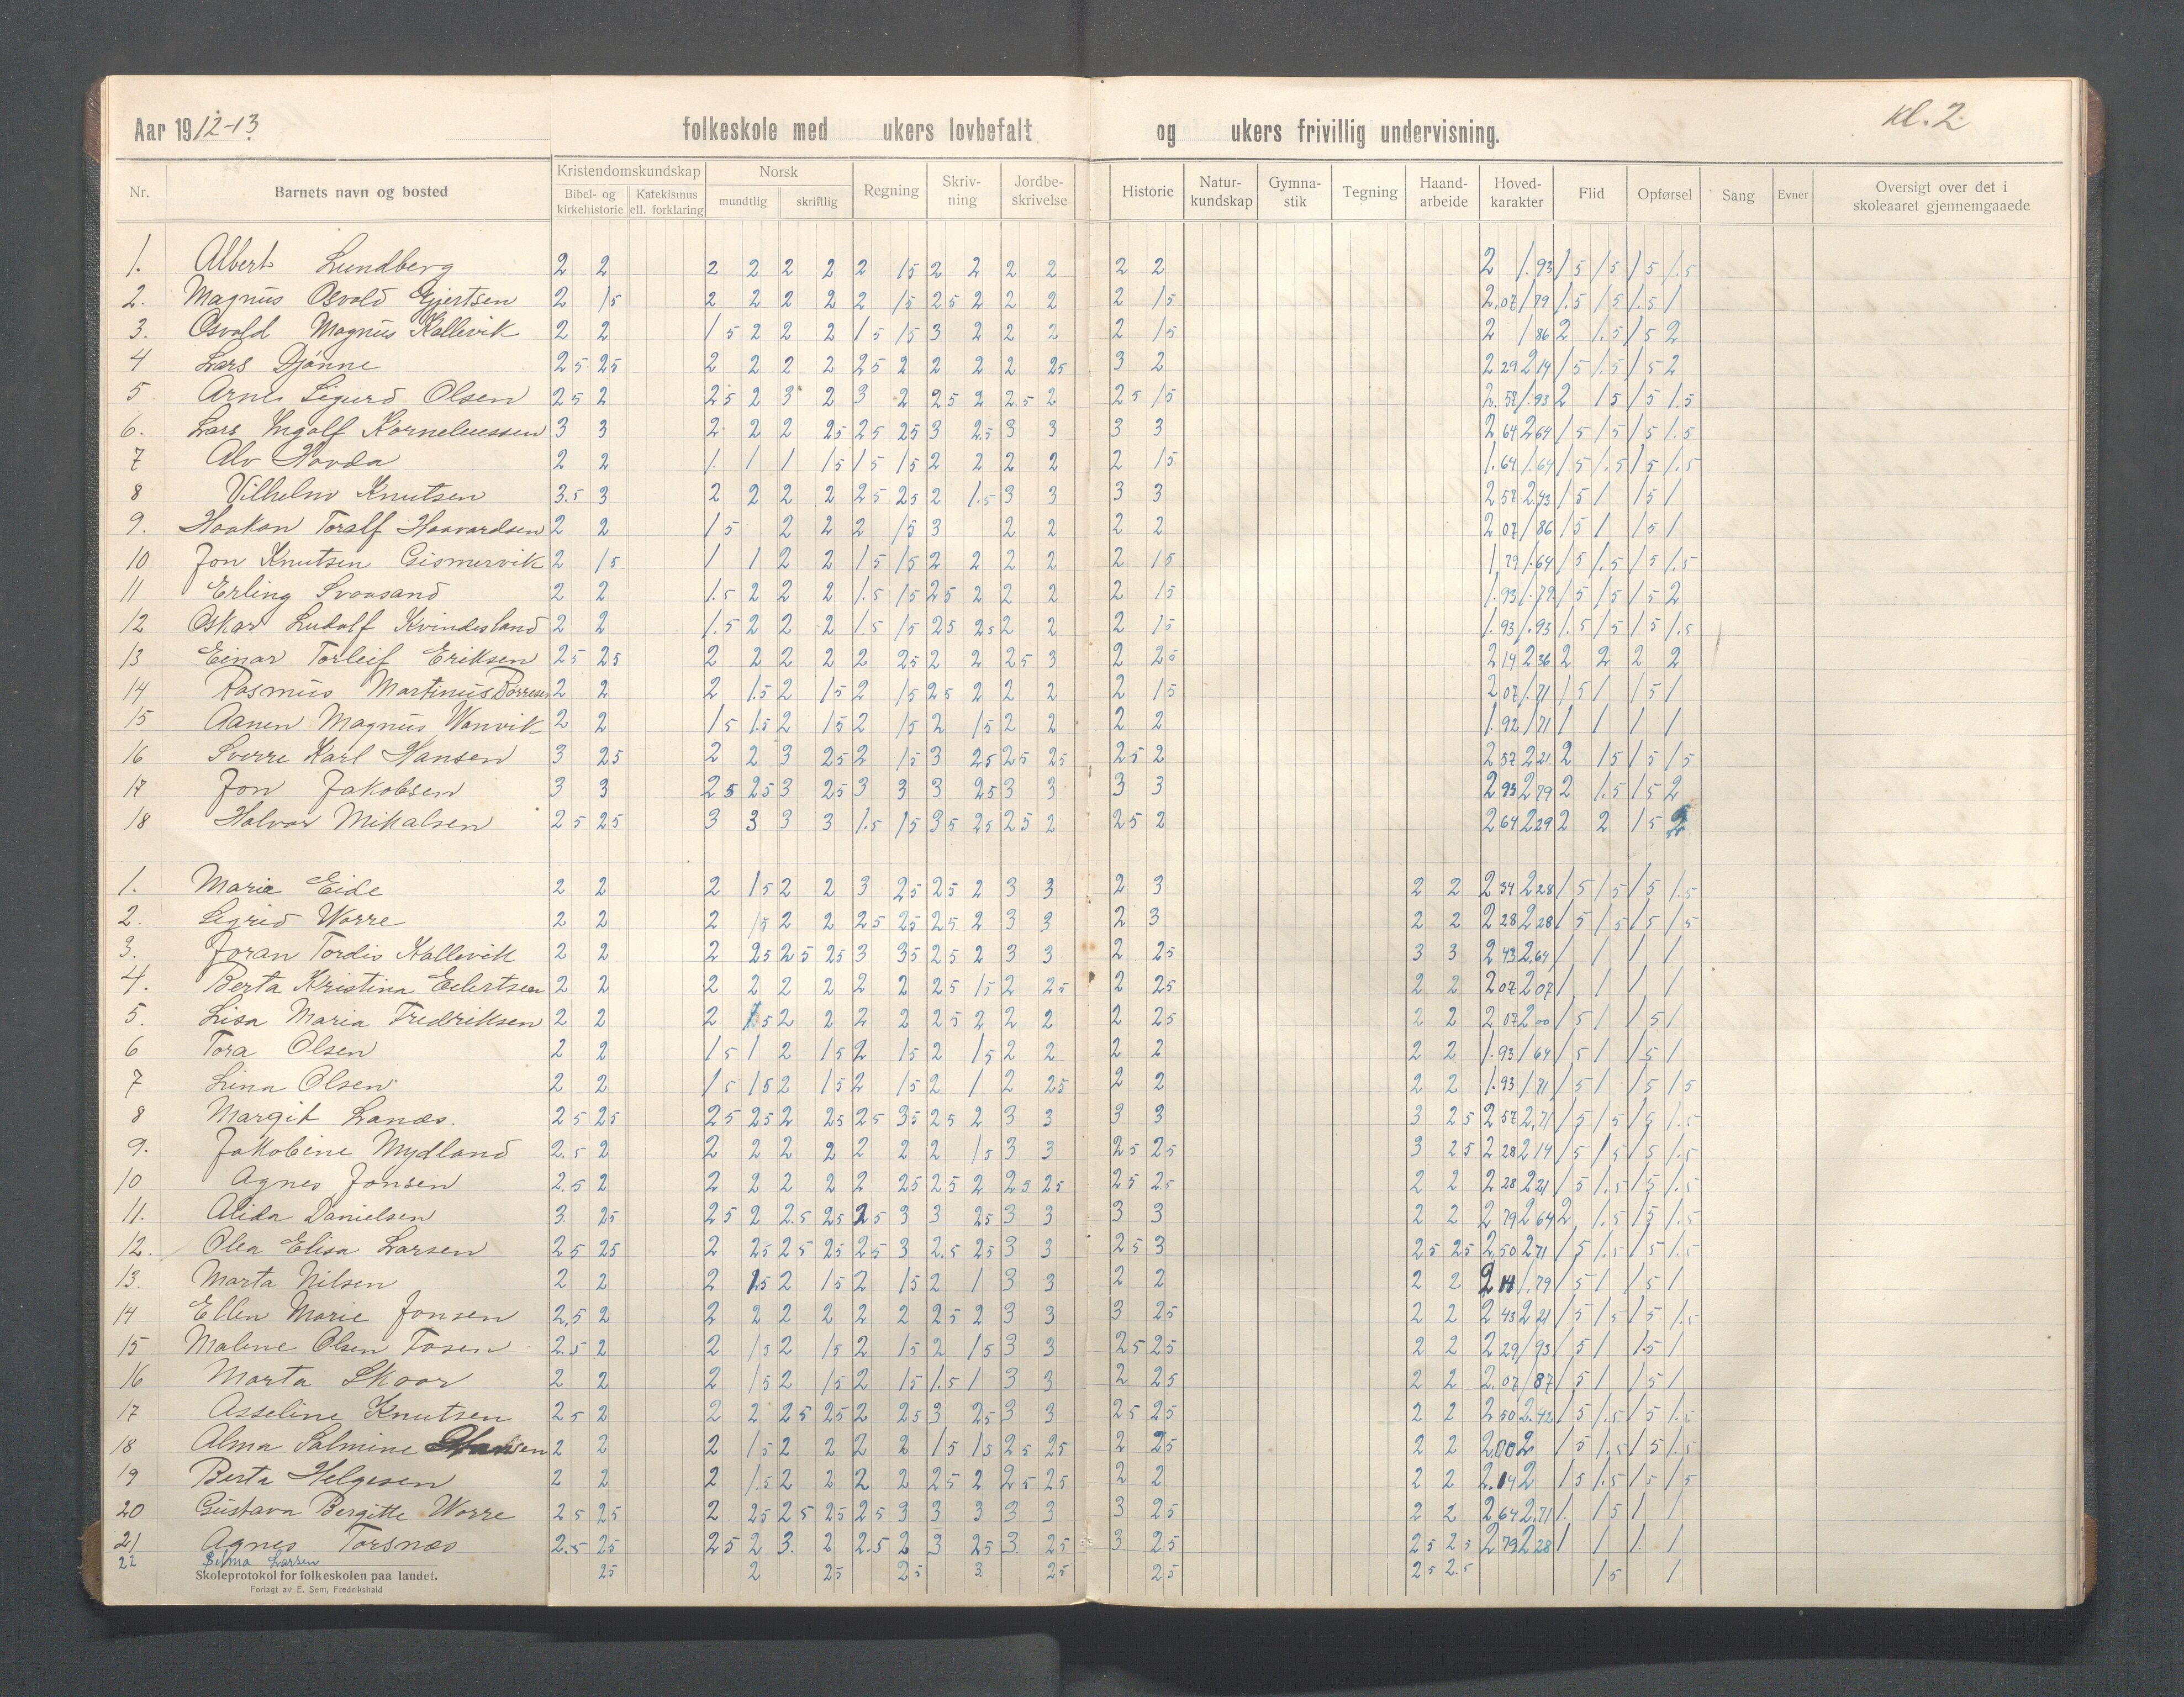 Aar 1912-13 folkeskole med ukers lovbefalt og ukers frivillig undervisning. kl. 2
Nr. Barnets navn og bosted Kristendomskundskap Bibel- og kirkehistorie Katekismus ell. forklaring Norsk mundtlig skriftlig Regning Skrivning Jordbeskrivelse Historie Naturkundskap Gymnastik Tegning Haandarbeide Hovedkarakter Flid Opførsel Sang Evner Oversigt over det i skoleaaret gjennemgaaede
1. Albert Lundberg 2 2 2 2 2 2 2 15 2 2 2 2 2 2 2 1.93 15 15 15 1.5
2. Magnus Osvald Gjertsen 2 15 2 2 2 2 2 15 25 2 2 2 2 15 2.07 179 1.5 15 1.5 1
3. Osvald Magnus Kallevik 2 2 15 2 2 2 15 15 3 2 2 2 2 15 2 186 2 1.5 15 2
4 Lars Djønne 25 25 2 2 2 2 25 2 2 2 2 25 3 2 229 214 15 1.5 15 2
5 Arne Sigurd Olsen 25 2 25 2 3 2 3 2 25 2 2.5 2 25 15 2.57 1.93 2 15 15 1.5
6. Lars Ingolf Korneliussen 3 3 2 2 2 25 25 25 3 2.5 3 3 3 3 264 264 15 15 15 1.5
7 Alv Hovda 2 2 1. 1 1 15 15 15 2 2 2 2 2 15 1.64 1.64 15 1.5 15 1.5
8 Vilhelm Knutsen 3.5 3 2 2 2 2 25 25 2 1.5 3 3 3 3 257 2.43 15 1 15 1
9. Haakon Toralf Haavardsen 2 2 15 2 2 2 15 3 2 2 2 2 207 186 15 1 15 1
10 Jon Knutsen Gismervik 2 15 1 1 2 2 15 15 2 2 2 2 2 15 1.79 1.64 15 1.5 15 1.5
11 Erling Svaasand 2 2 1.5 2 2 2 1.5 15 25 2 2 2 2 15 1.93 1.79 15 15 15 2
12 Oskar Ludolf Kvindesland 2 2 1.5 2 2 2 1.5 15 25 25 2 2 2 15 1.93 1.93 1.5 15 15 1.5
13 Einar Torleif Eriksen 25 25 2 2 2 2 2 25 2 2 25 3 2 25 214 236 2 2 2 2
14 Rasmus Martinus Børresen 2 2 2 1.5 2 15 2 15 25 2 2 2 2 15 207 1.71 15 1 15 1
15 Aanen Magnus Vanvik 2 2 15 1.5 2 15 2 15 2 15 2 2 2 2 1.92 171 1 1 1 1
16 Sverre Karl Hansen 3 25 2 2 3 25 2 15 3 25 25 25 25 2 257 221 2 15 15 15
17 Jon Jakobsen 3 3 25 25 3 25 3 3 3 25 3 3 3 3 293 279 2 1.5 15 2
18 Halvor Mikalsen 25 25 3 3 3 3 1.5 15 35 25 25 2 25 2 264 229 2 2 15 2
1. Marie Eide 2 2 2 15 2 2 3 25 25 2 3 3 2 3 2 2 234 228 15 15 15 1.5
2. Sigrid Vorre 2 2 2 15 2 2 25 25 25 2 3 3 2 3 2 2 228 228 15 15 15 15
3. Joran Tordis Kallevik 2 2 2 25 25 25 3 35 25 2 3 3 2 25 3 3 243 2.64 1 1 1 1
4. Berta Kristina Eilertsen 2 2 2 2 2 2 2 2 25 15 2 25 2 25 2 2 207 207 1 1 1 1
5. Lisa Maria Fredriksen 2 2 2 15 2 2 2 2 25 2 2 2 2 25 2 2 207 200 15 1 15 1
6 Tora Olsen 2 2 15 1 2 15 2 15 2 15 2 2 2 2 2 2 1.93 164 15 1 15 1
7 Lina Olsen 2 2 15 15 2 15 2 15 2 1 2 25 2 2 2 2 1.93 171 15 1 15 15
8 Margit Lanæs. 25 25 25 25 2 25 25 35 25 2 3 3 3 3 3 25 257 2.71 15 15 15 1.5
9. Jakobine Mydland 2.5 2 2 2 2 2 2 2 2 15 3 3 25 25 3 25 228 214 15 15 15 1.5
10 Agnes Jonsen 2.5 2 2 2 2 2 2 25 25 2 25 25 25 25 2 2 228 221 15 1.5 15 1.5
11. Alida Danielsen 3. 25 25 2 2.5 25 25 3 3 25 3 3 3 3 2 2 279 264 2 1.5 15 1.5
12. Olea Elisa Larsen 25 25 2 25 25 25 25 3 2.5 25 3 3 25 3 25 25 2.50 271 15 1.5 15 1.5
13. Marta Nilsen 2 2 2 15 2 15 2 15 2 1 3 3 2 2 2 2 214 1.79 15 1 15 1
14 Ellen Marie Jonsen 2.5 2 2 2 2 2 2 2 25 2 3 3 3 25 2 2 243 221 15 15 15 1.5
15 Malene Olsen Tosen 2.5 2 2 15 2 15 2 15 2 15 3 3 25 25 2 2 229 193 15 1 1.5 1
16 Marta Skaar 2 2 2 15 2 15 2 15 1.5 1 3 3 2 25 2 2 2.07 187 15 1 15 1
17 Asseline Knutsen 25 2 2 2 25 25 2 25 3 25 3 3 25 25 2 2 250 2.42 15 1.5 15 1.5
18 Alma Salmine Hansen 2 2 2 15 2 2 2 2 15 15 25 25 2 25 2 2 2.00 2 15 1.5 15 1.5
19 Berta Helgesen 2 2 2 1.5 2 2 2 2 25 2 25 25 2 2 2 2 2.14 2 15 1.5 15 15
20 Gustava Bergitte Vorre 25 25 2 25 25 25 25 3 3 3 3 3 3 25 2 2 264 2.71 1. 15 1 1
21 Agnes Torsnæs 2.5 25 25 2 3. 2 2.5 2 3 25 3. 25 3 25 25 25 279 228 1. 1 1. 1
22 Selma Larsen 25 2 25 25 3 25 25 25 2.5 15 1
Skoleprotokol for folkeskolen paa landet.
Forlagt av E. Sem, Fredrikshald